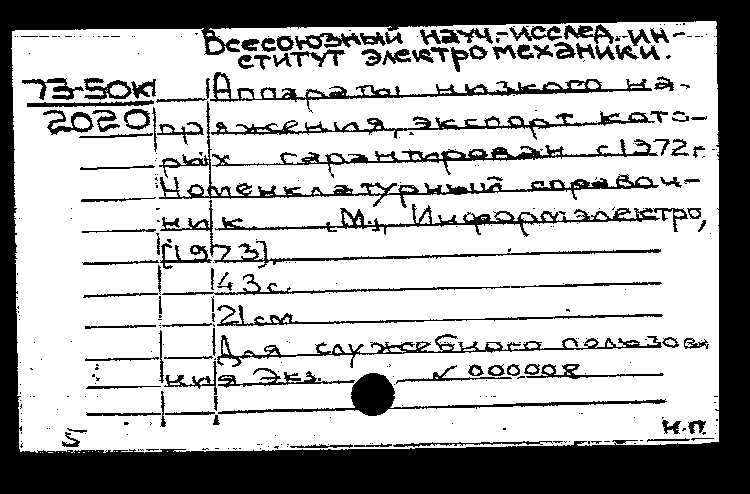 Всесоюзный науч.-исслед. ин-
ститут электромеханики.
73-50к
2020
Аппараты низкого на-
пряжения, экспорт кото-
рых гарантирован с 1972г.
Номенклатурный справоч-
ник. М., Информэлектро,
[1973].
43с.
21см
Для служебного пользова
ния Экз. № 000008
н.п.